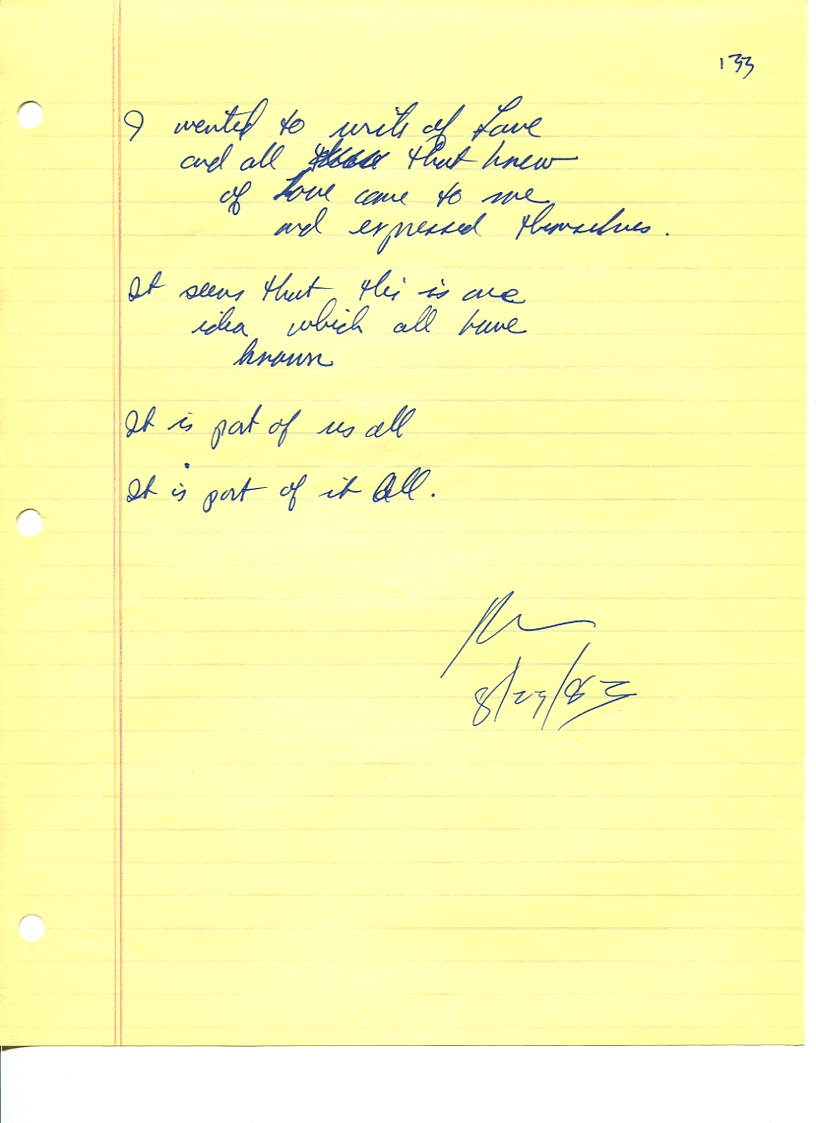 133
I wanted to write of Love
and all that knew
of Love came to me
and expressed themselves.
It seems that this is one
idea which all have
known
It is part of us all
It is part of it All.
8/29/83